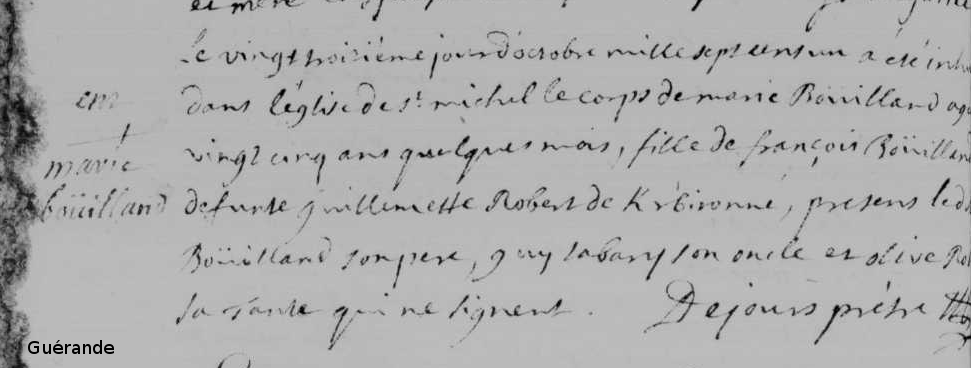 le vingt troiziéme jour d'octobre mille sept cens un a été inhu
dans l'église de st michel le corps de marie Boüilland agé
vingt cinq ans quelques mois, fille de françois Boüilland
defunte guillemette Robert de Krbironné, presens led
Boüilland son pere, guy tabary son oncle et olive Rob
sa tante qui ne signent. Dejours prétre
em
marie
boüilland
Guérande